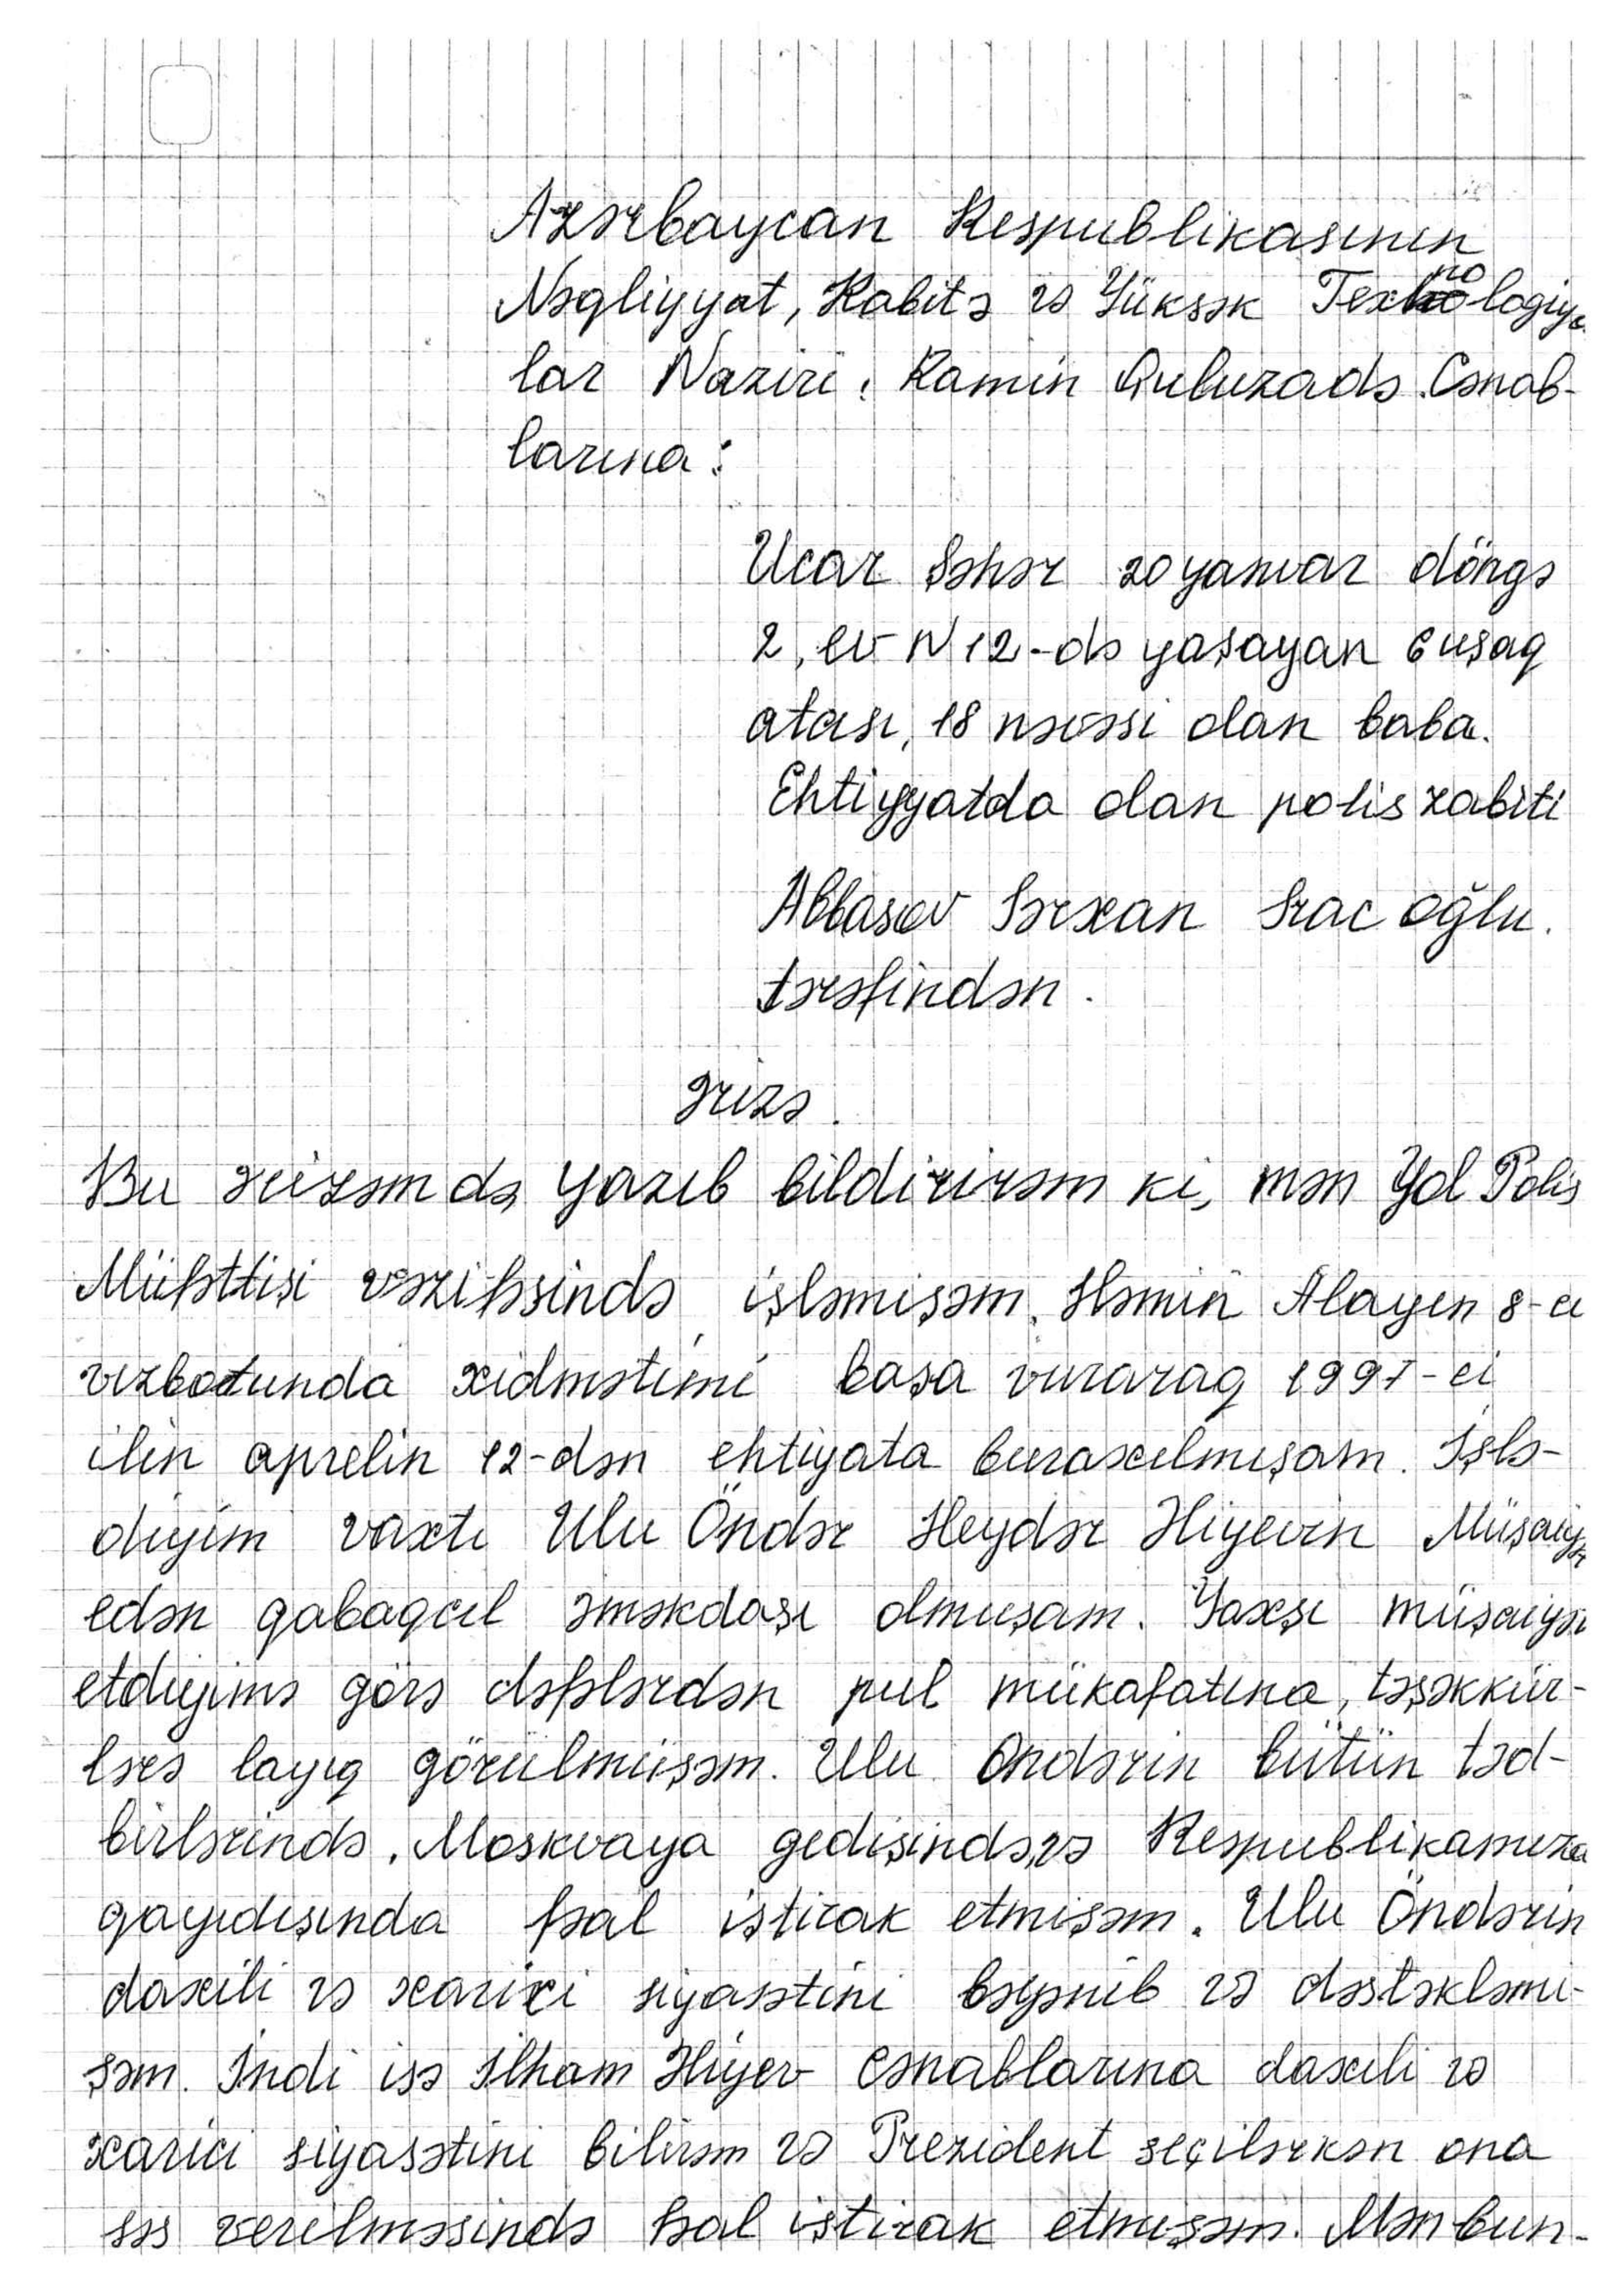 Azərbaycan Respublikasının
Nəqliyyat, Rabitə və Yüksək Texnologiya
lar Naziri. Ramin Quluzadə Cənab-
larına:
Ucar Şəhər 20 yanvar döngə
2, ev N 12-də yaşayan 6 uşaq
atası, 18 nəvəsi olan baba.
Ehtiyyatda olan polis zabiti
Abbasov Sərxan Sirac oğlu.
tərəfindən.
Ərizə.
Bu ərizəmdə yazıb bildirirəm ki, mən Yol Polis
Müfəttişi vəzifəsində işləmişəm. Həmin Alayın 8-ci
vzbodunda xidmətimi başa vuraraq 1997-ci
ilin aprelin 12-dən ehtiyata buraxılmışam. İşlə-
diyim vaxtı Ulu Öndər Heydər Əliyevin Müşaiyət
edən qabaqcıl əməkdaşı olmuşam. Yaxşı müşaiyət
etdiyimə görə dəfələrdən pul mükafatına, təşəkkür-
lərə layıq görülmüşəm. Ulu Öndərin bütün təd-
birlərində. Moskvaya gedişində, və Respublikamıza
qayıdışında fəal iştirak etmişəm. Ulu Öndərin
daxili və xarici siyasətini bəyənib və dəstəkləmi-
şəm. İndi isə İlham Əliyev Cənablarına daxili və
xarici siyasətini bilirəm və Prezident seçilərkən ona
səs verilməsində fəal iştirak etmişəm. Mən bun-